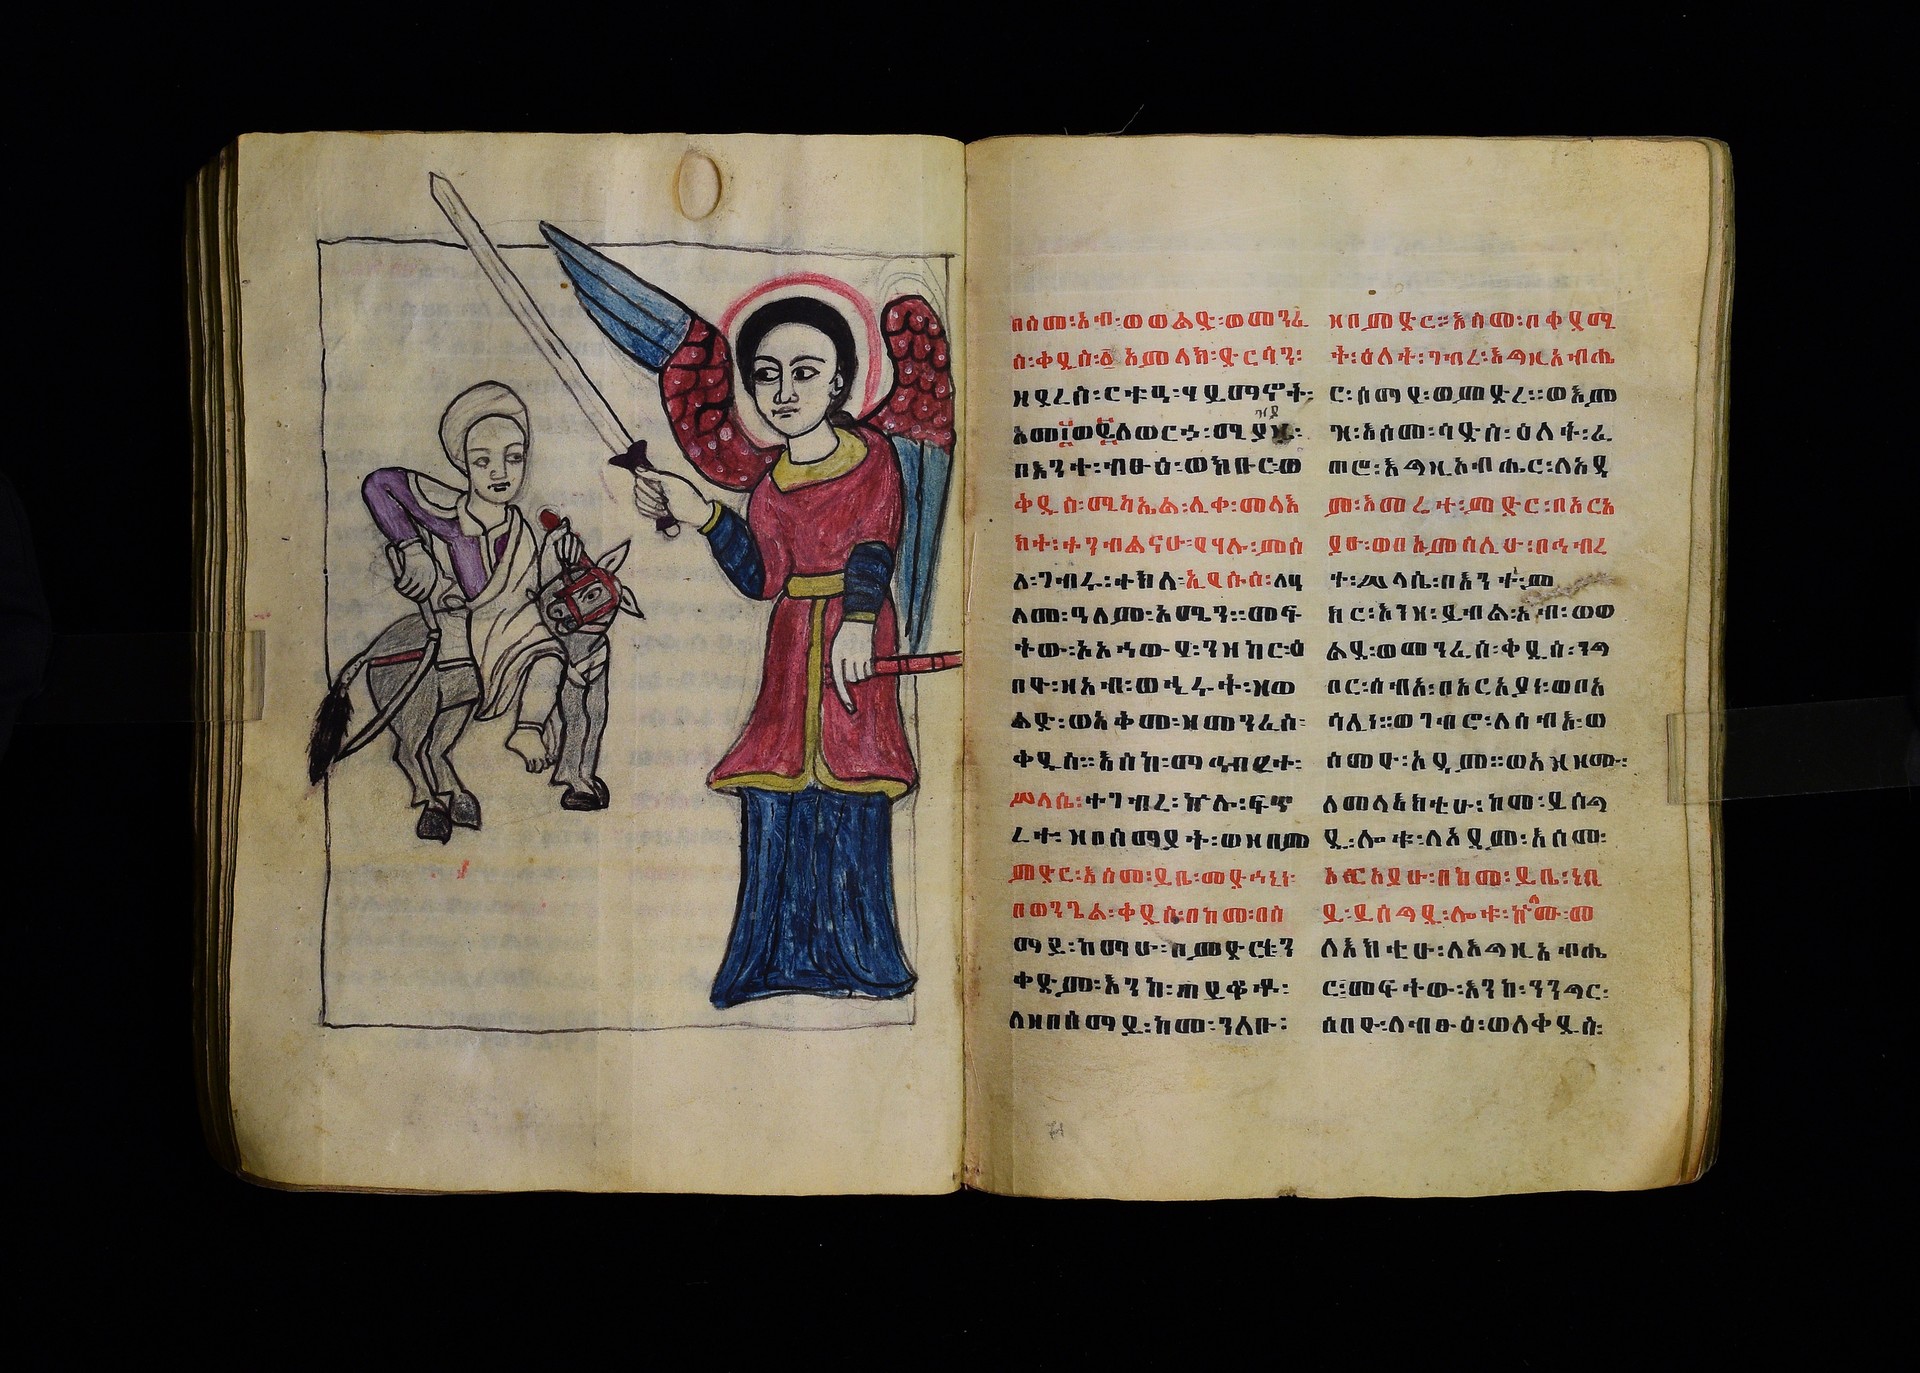 በስመ፡አብ፡ወወልድ፡ወመንፈ
ስ፡ቅዱስ፡፩አምላክ፡ድርሳን፡
ዘደረሰ፡ርቱዓ፡ሃይማኖት፡
አመ፲ወ፪ለወርኃ፡
በእንተ፡ብፁዕ፡ወክቡር፡ወ
ቅዱስ፡ሚካኤል፡ሊቀ፡መላእ
ክት፡ተንብልናሁ፡የሃሉ፡ምስ
ለ፡ገብሩ፡ተክለ፡ኢየሱስ፡ለዓ
ለመ፡ዓለም፡አሜን።መፍ
ትው፡አአኀውየ፡ንዝክር፡ዕ
በዮ፡ለአብ፡ወኂሩት፡ዘወ
ልድ፡ወአቅሙ፡ዘመንፈስ፡
ቅዱስ።እስከ፡ማኅብረት፡
ሥላሴ፡ተገብረ፡ኵሉ፡ፍጥ
ረት፡ዘበሰማያት፡ወዘበም
ምድር፡እስመ፡ይቤ፡መድኀኒነ፡
በወንጌል፡ቀዱስ፡በከመ፡በሰ
ማይ፡ከማሁ፡በምድርኒ፡
ቀድሙ፡እንከ፡ጠይቆቶ፡
ለዘበሰማይ፡ከመ፡ንለቡ፡
ዘበምድር።እስመ፡በቀዳሚ
ት፡ዕለት፡ገብረ፡እግዚአብሔ
ር፡ሰማየ፡ወምድረ።ወእም
ዝ፡እስመ፡ሳድስ፡ዕለት፡ፈ
ጠሮ፡እግዚአብሔር፡ለአዳ
ም፡እመሬተ፡ምድር፡በአርአ
ያሁ፡ወበአምሳሊሁ፡በኅብረ
ተ፡ሥላሴ፡በእንተ፡ም
ክር፡እንዘ፡ይብል፡አብ፡ወወ
ልድ፡ወመንፈስ፡ቅዱስ፡ንግ
በር፡ሰብአ፡በአርአያነ፡ወበአ
ሳሊነ።ወገብሮ፡ለሰብእ፡ወ
ሰመዮ፡አዳም።ወአዘዞሙ፡
ለመላእክቲሁ፡ከመ፡ይሰግ
ዱ፡ሎቱ፡ለአዳም፡እስመ፡
አርአያሁ፡በከመ፡ይቤ፡ነቢ
ይ፡ይሰግዱ፡ሎቱ፡ኵሎሙ፡መ
ላእክቲሁ፡ለእግዚአብሔ
ር፡መፍትው፡እንከ፡ንንግር፡
ዕበዮ፡ለብፁዕ፡ወለቅዱስ፡